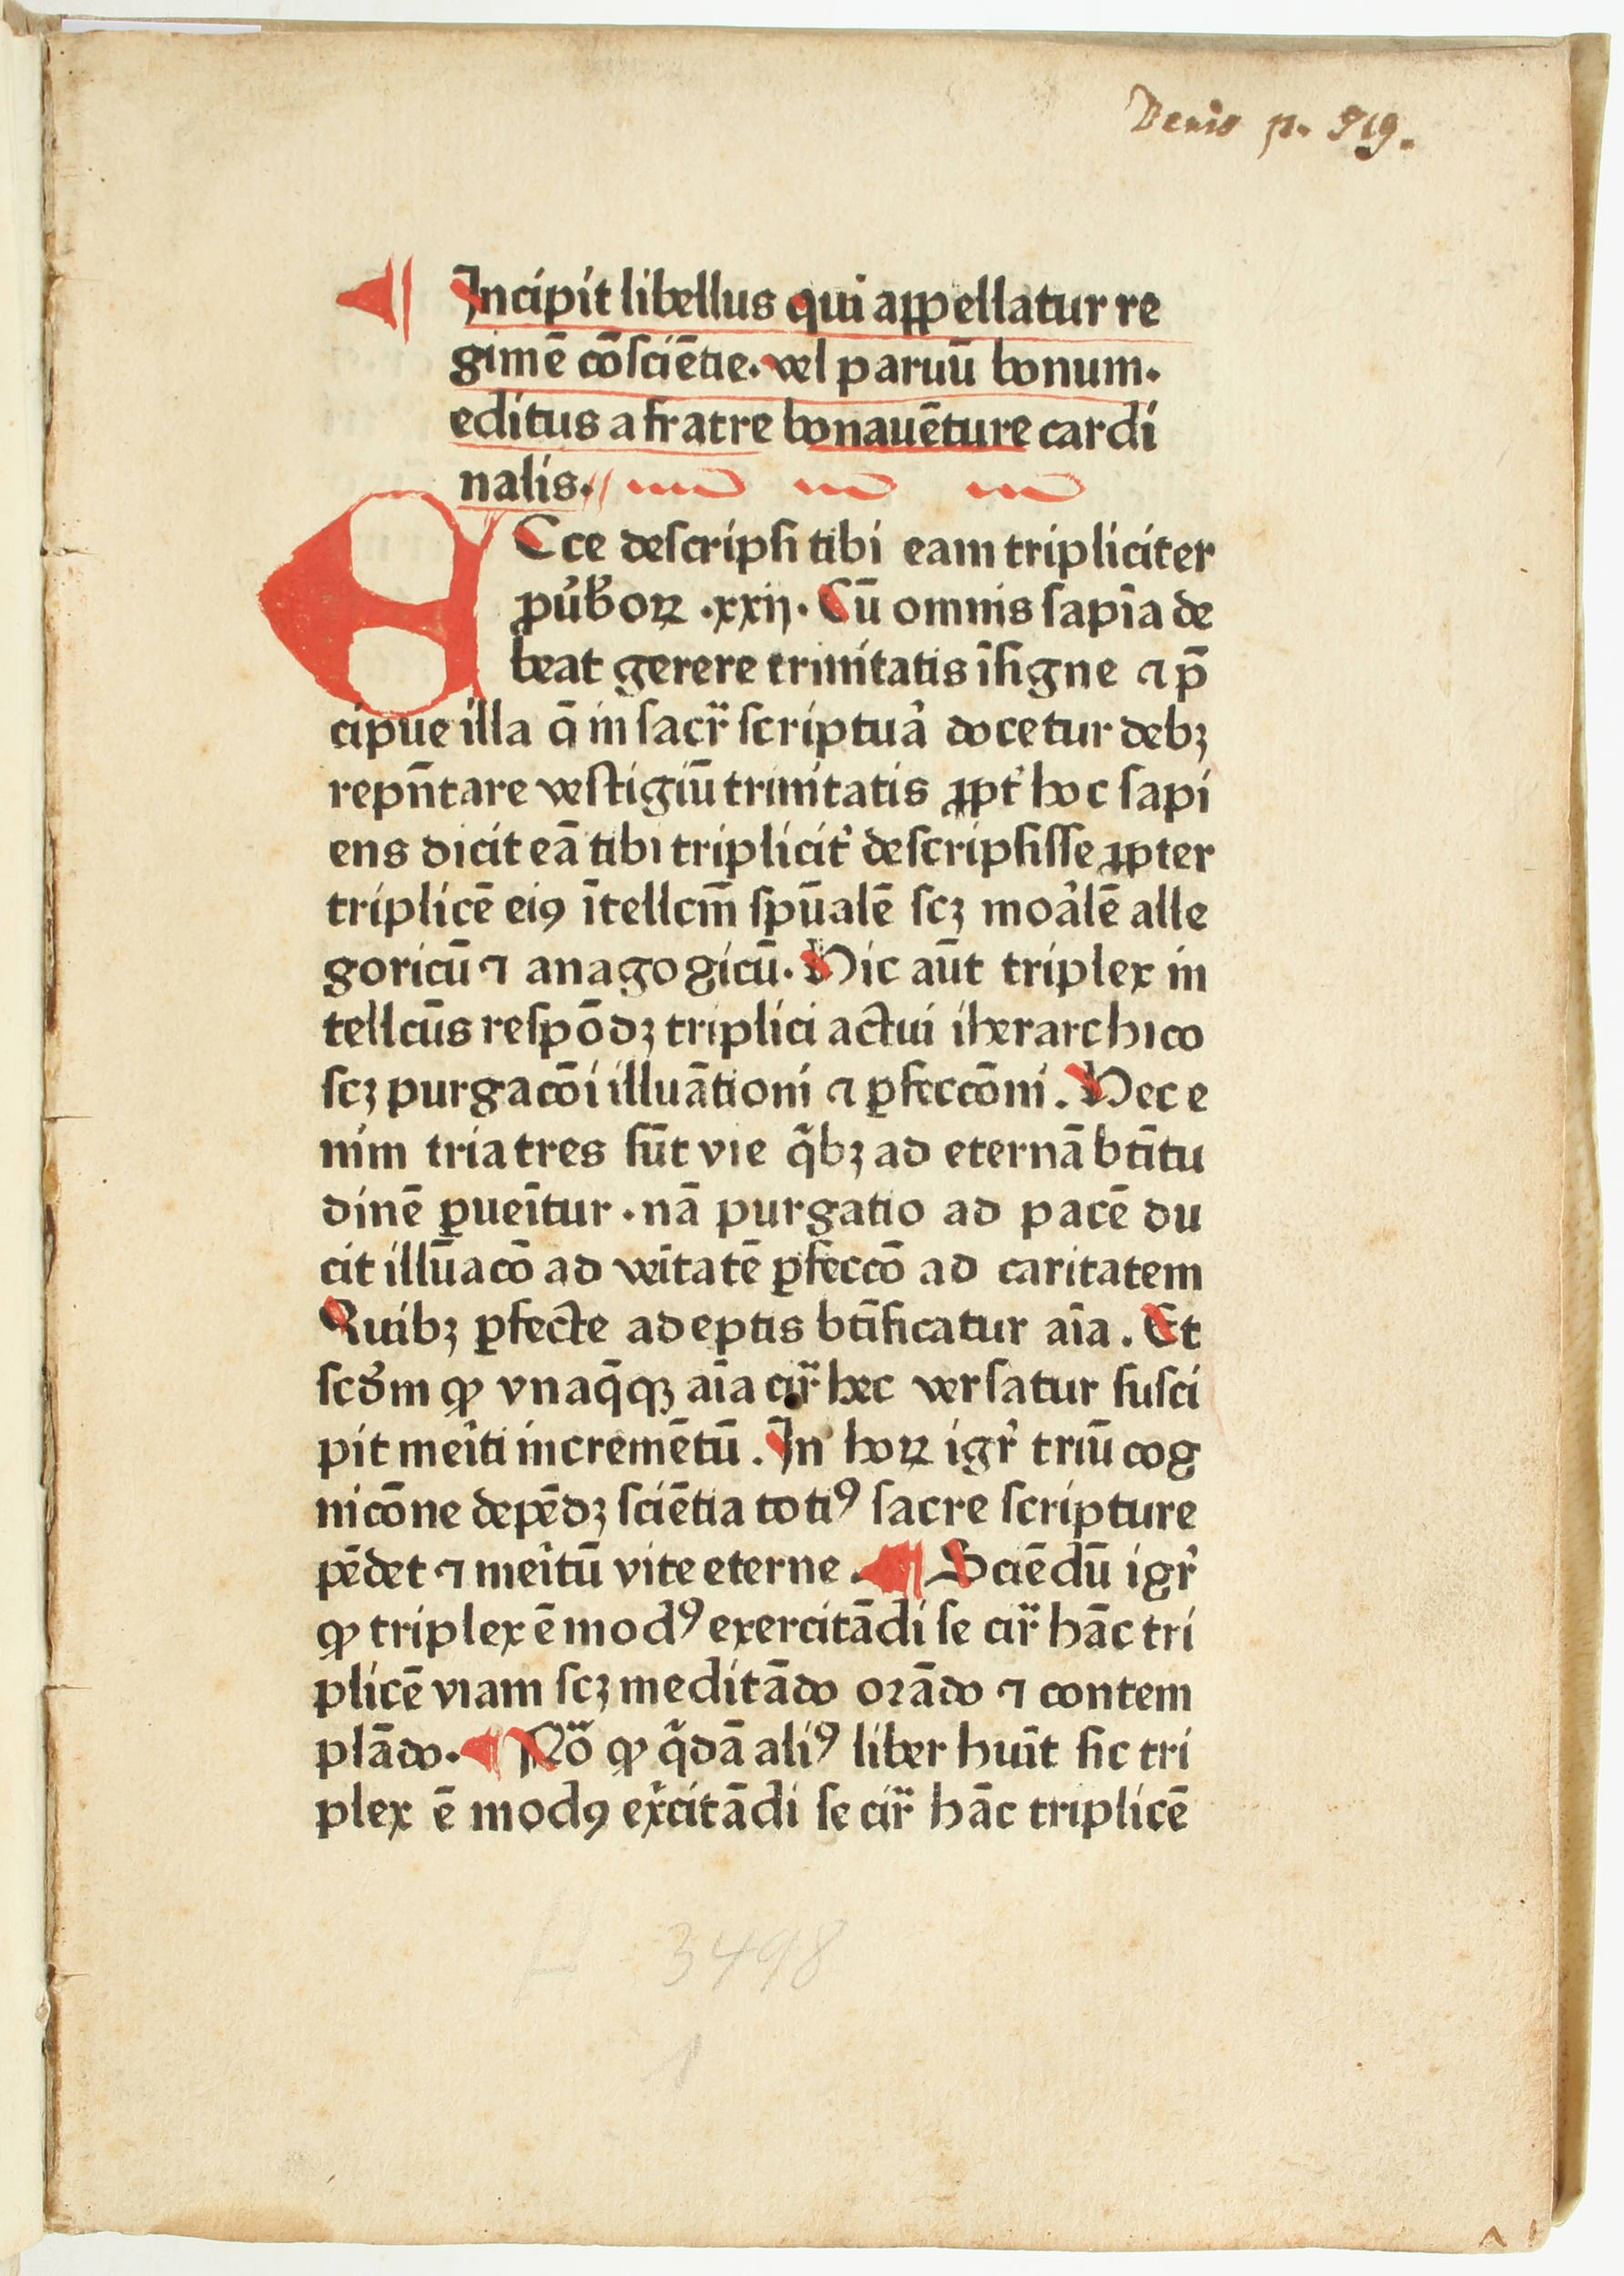 Denis p. 519.
Incipit libellus qui appellatur re
gimē cōsciētie. vel paruū bonum.
editus a fratre bonauēture cardi
nalis.
Ecce descripsi tibi eam tripliciter
ꝓu͛boꝝ .xxij. Cū omnis sapīa de
beat gerere trinitatis īsigne ⁊ p̄
cipue illa q̄ in sacr̄ scriptu͛a docetur debꝫ
repn̄tare vestigiū trinitatis ꝓpt͛ hoc sapi
ens dicit eā tibi triplicit͛ descripsisse ꝓpter
triplicē eiꝰ ītellcm̄ spūalē scꝫ mo͛alē alle
goricū ⁊ anagogicū. Hic aūt triplex in
tellcūs respōdꝫ triplici actui iherarchico
scꝫ purgacōi illuātioni ⁊ ꝑfeccōni. Hec e
nim tria tres sūt vie q̄bꝫ ad eternā btītu
dinē ꝑueītur. nā purgatio ad pacē du
cit illūacō ad veītatē ꝑfeccō ad caritatem
Quibꝫ ꝑfecte adeptis btīficatur aīa. Et
scd͛m ꝙ vnaq̄qꝫ aīa cir̄ hec versatur susci
pit meîti incremētū. In hoꝝ igr͛ triū cog
nicōne depēdꝫ sciētia totiꝰ sacre scripture
pēdet ⁊ meîtū vite eterne. Sciēdū igr͛
ꝙ triplex ē modꝰ exercitādi se cir̄ hāc tri
plicē viam scꝫ meditādo orādo ⁊ contem
plādo. No͛ ꝙ q̄dā aliꝰ liber huīt sic tri
plex ē modꝰ ex͛citādi se cir̄ hāc triplicē
H 3498
1